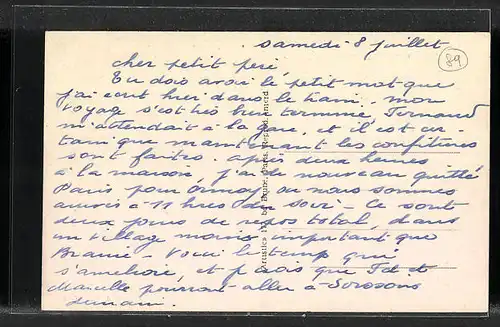 samedi 8 juillet
89
cher petit père
Tu dois avoir le petit mot que
j'ai écrit hier dans le train. mon
voyage s'est très bien terminé, Fernand
m'attendait à la gare, et il est cer-
tain que maintenant les confitures
sont faites. après deux heures
à la maison, j'ai de nouveau quitté
Paris pour où nous sommes
arrivés à 11 hres du soir - Ce sont
deux jours de repos total, dans
un village moins important que
Braine - Voici le temps qui
s'améliore, et je crois que et
Marcelle pourront aller à Soissons
demain.